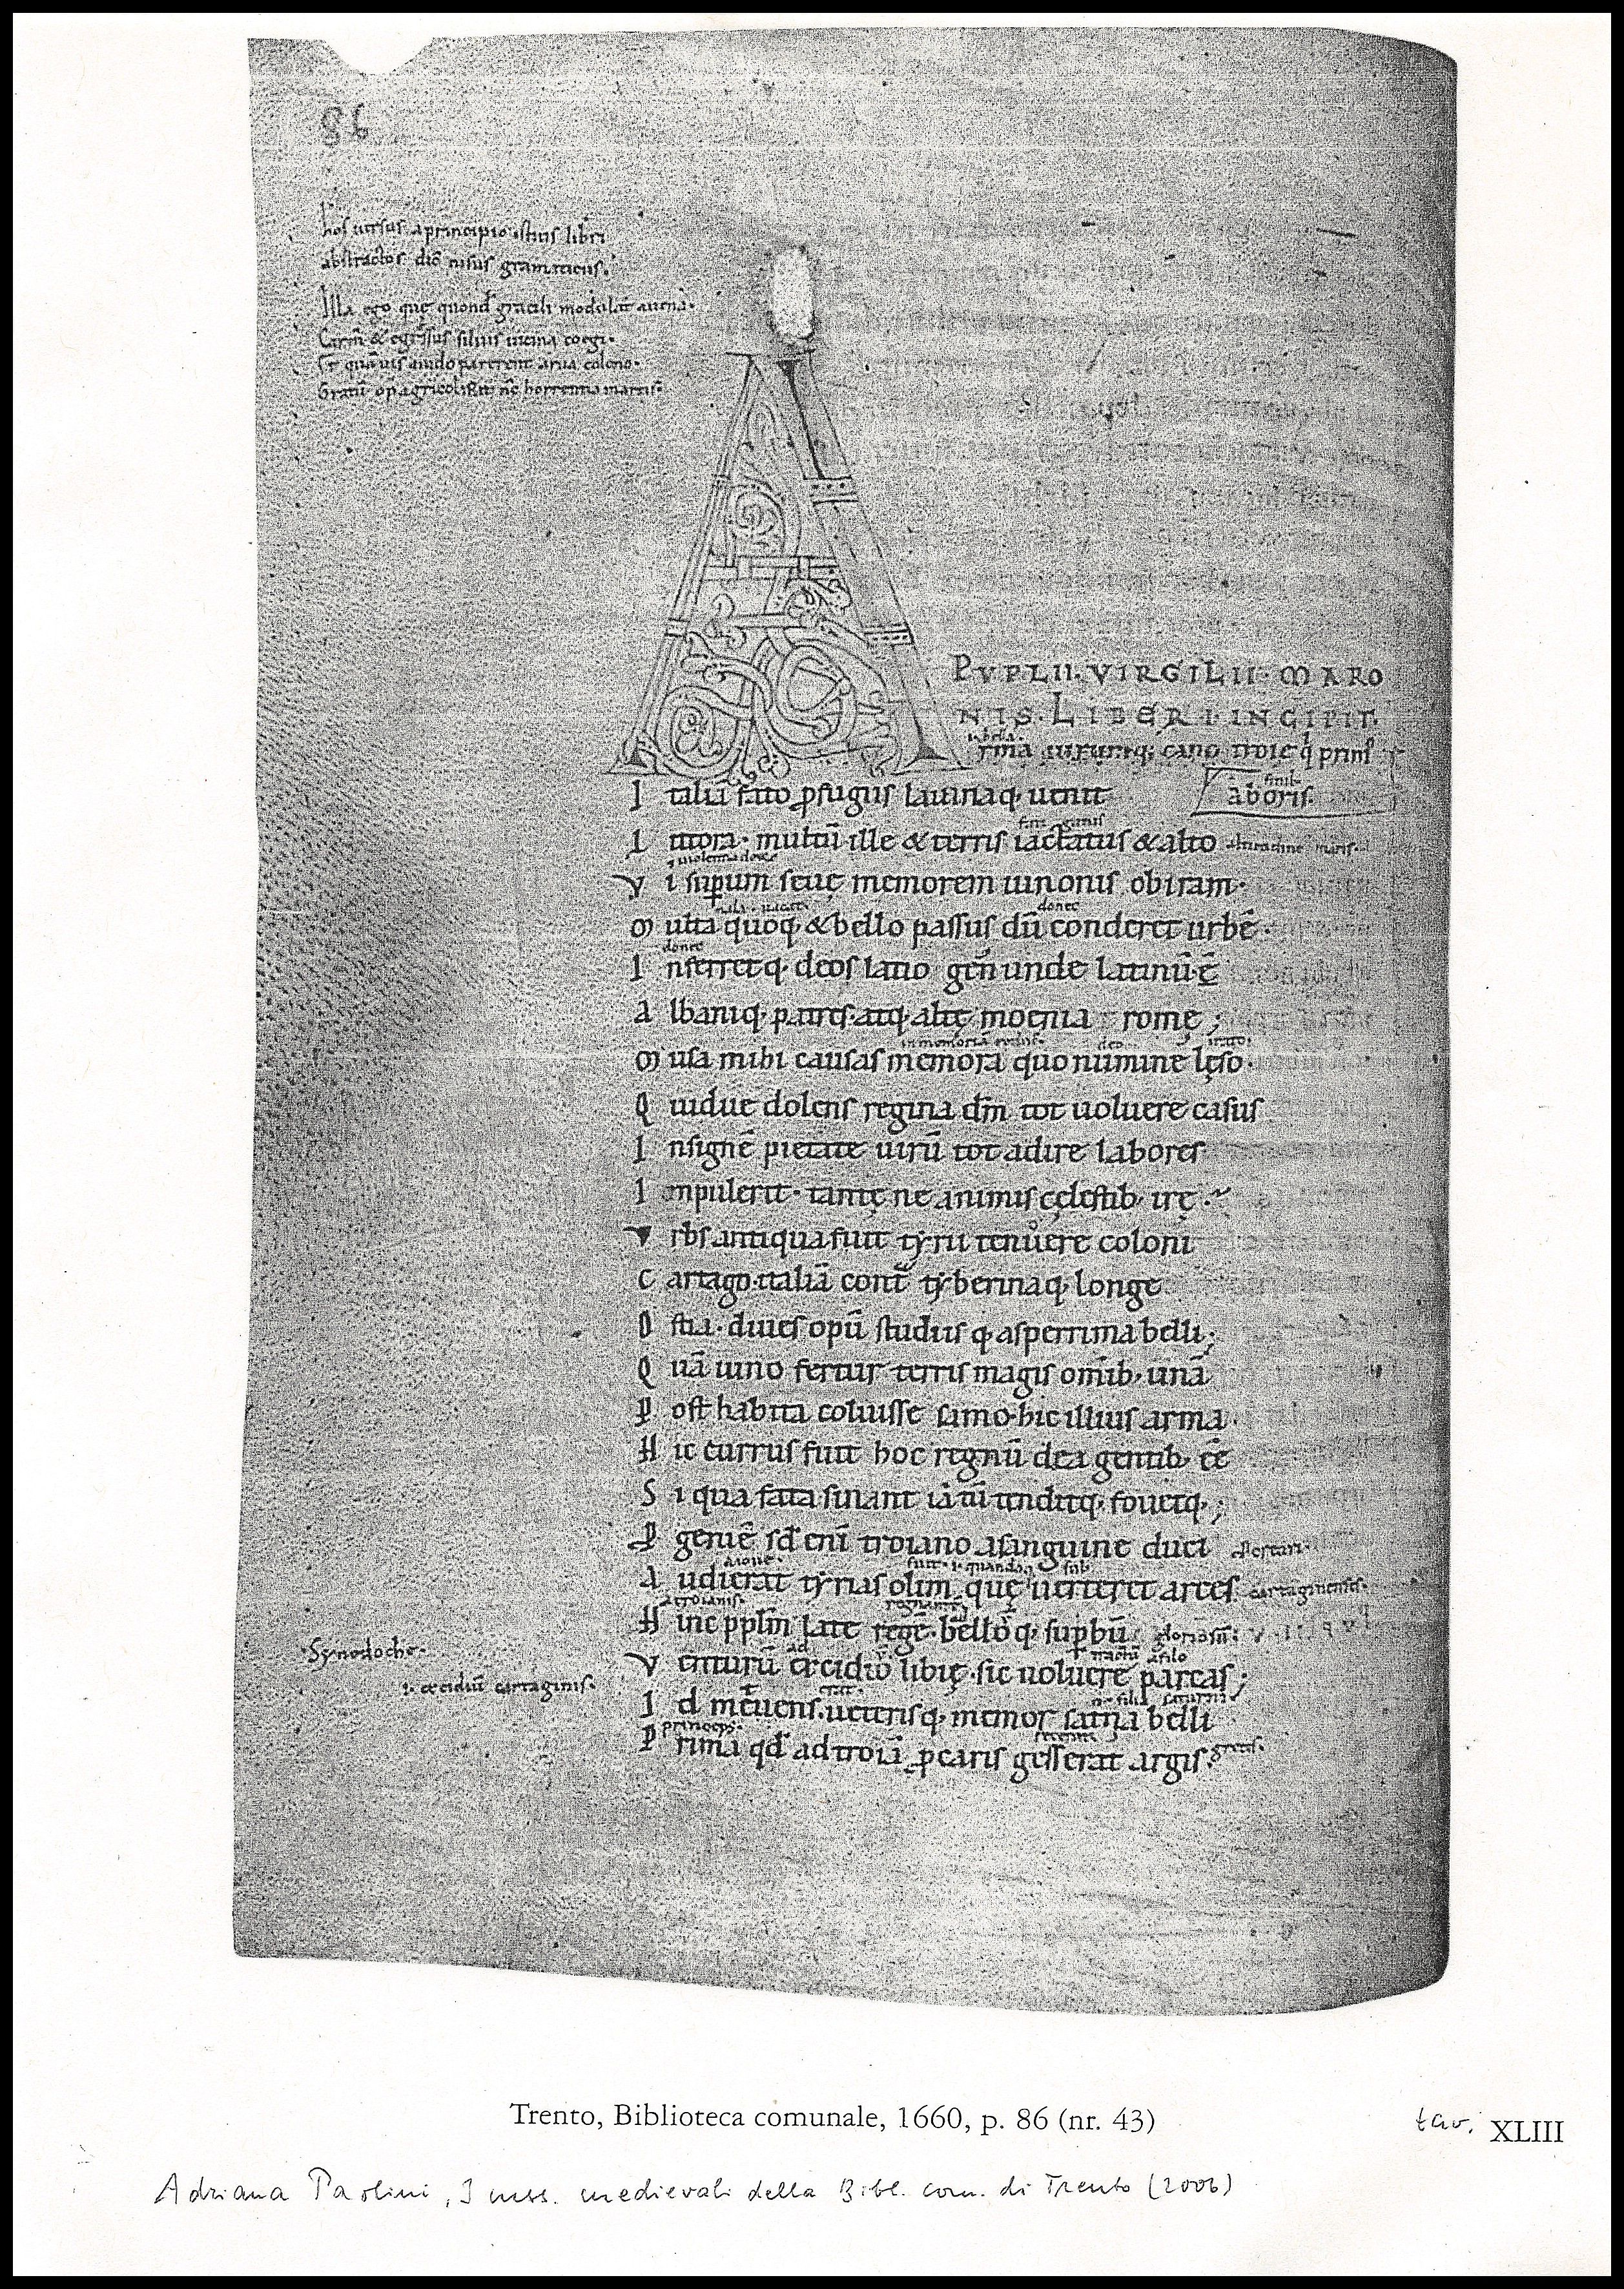 86
hos uersus a principio istius libri
abstractos dic̄ nisus gramaticus.
Illa ego quę quond̄ gracili modulat auena.
Carm̄ & egressus siluis uicina coegi.
Vt quāuis auido parerent arua colono.
Gratū op agricolis at nc̄ horrentia martis.
PVPLII. VIRGILII. MARO
NIS. LIBER I. INCIPIT.
rma uirumq; cano troie q prim
I talia fato ꝓfugus lauinaq; uenit
aboris.
L ittora. multū ille & terris iactatus & alto altitudine maris.
V i supum seuę memorem iunonis ob iram.
donec
M ulta quoq; & bello passus dū conderet urbē.
donec
I nferretq; deos latio gen̄ unde latinū ē
A lbaniq; patres. atq; altę moenia rome;
M usa mihi causas memora quo numine lęso.
Q uidue dolens regina dm̄ tot uoluere casus
I nsignē pietate uirū tot adire labores
I mpulerit. tantę ne animis cęlestib; irę.
V rbs antiqua fuit tẏrii tenuere coloni
C artago. italiā cont̄ tẏberinaq; longe
O stia. diues opū studiis q; asperrima belli;
Q uā iuno fertur terris magis om̄ib; unā
P ost habita coluisse samo. hic illius arma.
H ic currus fuit hoc regnū dea gentib; eē
S i qua fata sinant iā tū tenditq; fouetq;;
P geniē sd̄ enī troiano a sanguine duci
A udierat tẏrias olim quę uerteret arces cartaginensis.
a troianis.
H inc pplm̄ late regē. bello q; supbū
Synodoche.
V enturū excidio libię. sic uoluere parcas;
i. excidiū cartaginis.
I d metuens. ueteris q; memor satn̄a belli
princeps.
P rima qd̄ ad troiā ꝓ caris gesserat argis. grecis.
Trento, Biblioteca comunale, 1660, p. 86 (nr. 43)
tav. XLIII
Adriana Paolini, I mss. medievali della Bibl. com. di Trento (2006)